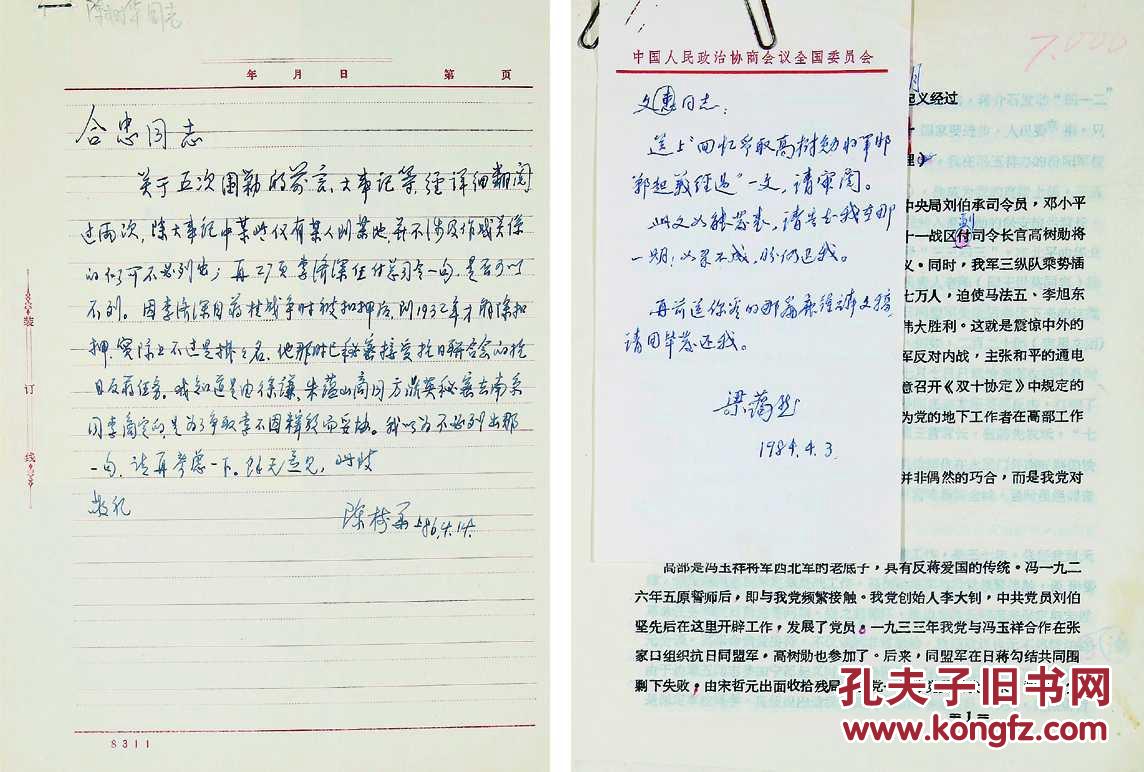 陈树华同志
年 月 日 第 页
合忠同志
关于五次围剿的前言、大事记等，经详细翻阅
过两次，除大事记中某些仅有某人到某地，并不涉及作战关系
的似可不必列出；再27页李济深任什么一句，是否可以
不列。因李济深自蒋桂战争时被扣押后，到1932年才解除扣
押，实际上不过是挂之名，他那时已秘密接受抗日联合会的抗
日反蒋任务。我知道是由徐谦、朱蕴山商同方鼎英秘密去南京
同李商定的，是为了争取李不因释放而妥协。我以为不必列出那
一句，请再考虑一下。余无意见，此致
敬礼
陈树华 86.4.14.
装
订
线
8311
中国人民政治协商会议全国委员会
文惠同志：
送上“回忆争取高树勋将军邯
郸起义经过”一文，请审阅。
此文如能发表，请告知我在那
一期；如果不成，盼仍还我。
再前送你的那篇
请用毕发还我。
梁蔼然
1984.4.3
7.000
月
起义经过
理
中央局刘伯承司令员，邓小平
十一战区付司令长官高树勋将
副
义。同时，我军三纵队乘势插
七万人，迫使马法五、李旭东
伟大胜利。这就是震惊中外的
军反对内战，主张和平的通电
意召开《双十协定》中规定的
为党的地下工作者在高部工作
并非偶然的巧合，而是我党对
高部是冯玉祥将军西北军的老底子，具有反蒋爱国的传统。冯一九二
六年五原誓师后，即与我党频繁接触。我党创始人李大钊，中共党员刘伯
坚先后在这里开辟工作，发展了党员。一九三三年我党与冯玉祥合作在张
家口组织抗日同盟军，高树勋也参加了。后来，同盟军在日蒋勾结共同围
剿下失败；由宋哲元出面收拾残局
=1=
孔夫子旧书网
www.kongfz.com